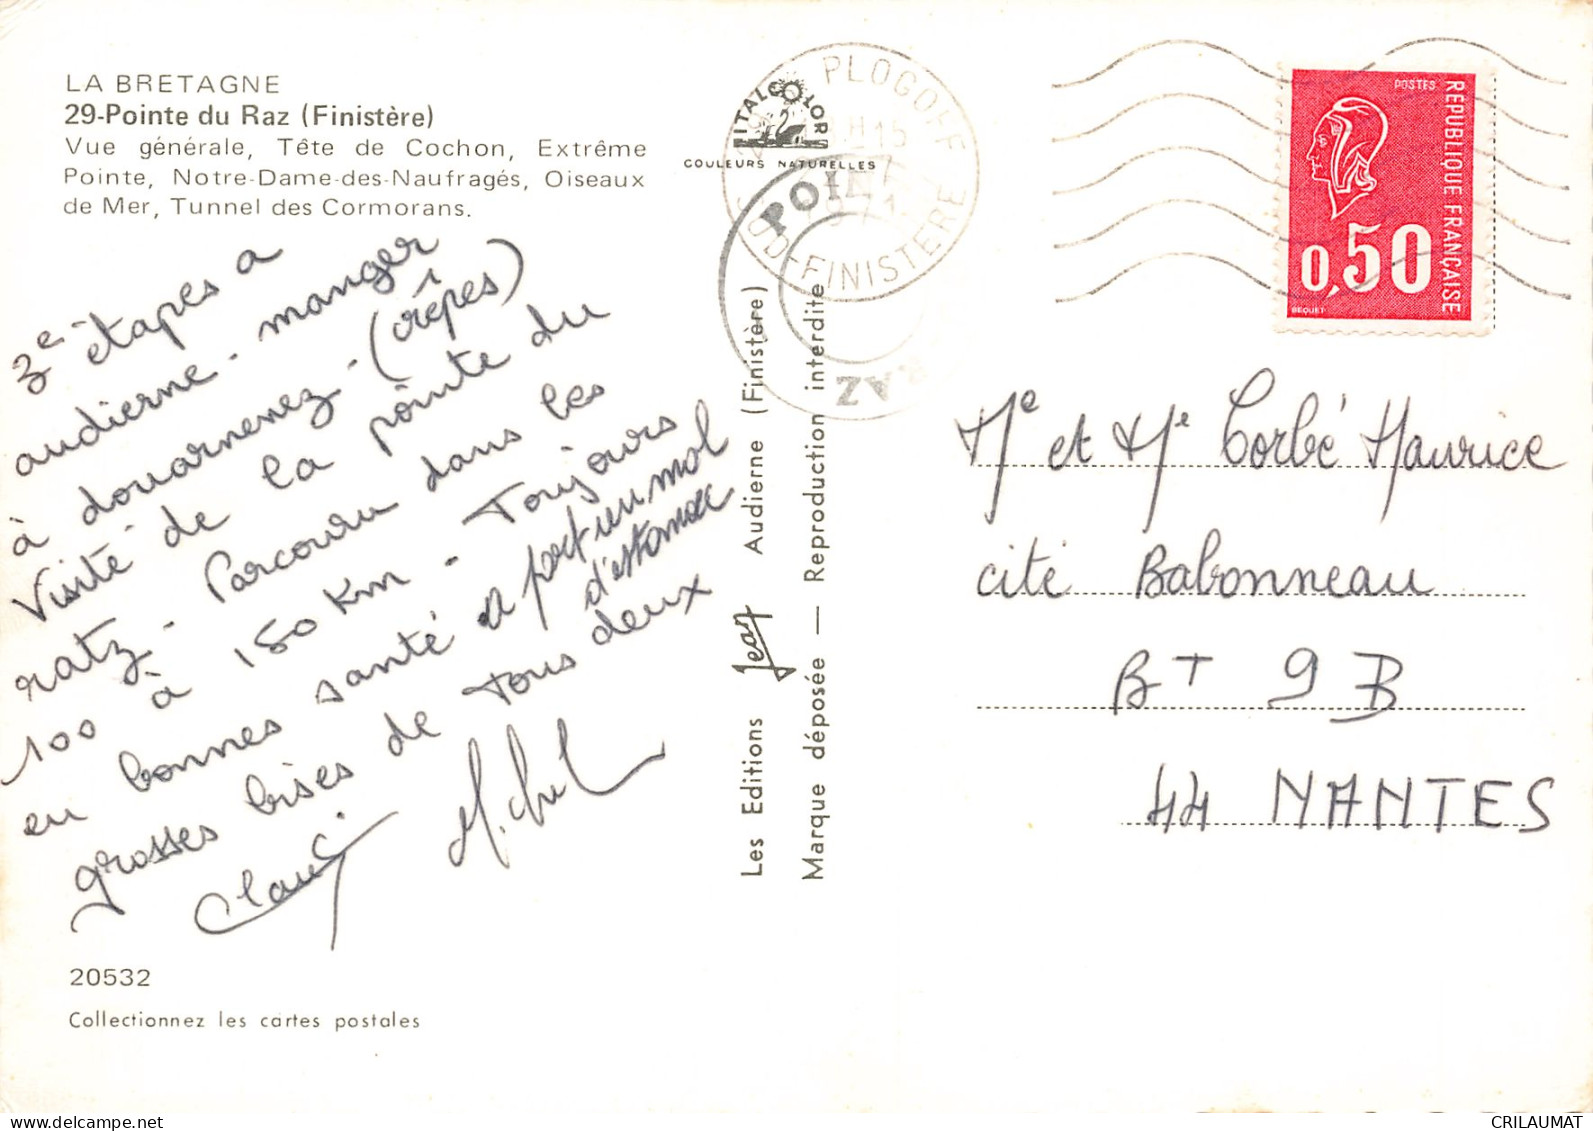 LA BRETAGNE
29-Pointe du Raz (Finistère)
Vue générale, Tête de Cochon, Extrême
Pointe, Notre-Dame-des-Naufragés, Oiseaux
de Mer, Tunnel des Cormorans.
3e étapes a
audierne - manger
à douarnenez - (crêpes)
Visité de la pointe du
ratz - Parcouru dans les
100 à 150 Km - Toujours
en bonnes santé a part un mol
d'estomac
grosses bises de tous deux
Michel
20532
Collectionnez les cartes postales
ITALCOLOR
COULEURS NATURELLES
PLOGOFF
FINISTERE
RAZ
Les Editions Jean Audierne (Finistère)
Marque déposée — Reproduction interdite
POSTES
REPUBLIQUE FRANÇAISE
0,50
BEQUET
Me et Me Corbé Maurice
cité Babonneau
BT 9B
44 NANTES
CRILAUMAT